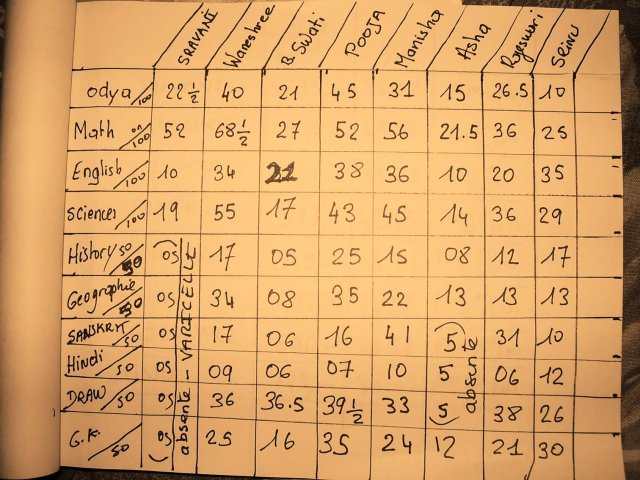 SRAVANI Waneshree B. Swati POOJA Manisha Asha Rajeswari Seinu
odya /100 22 1/2 40 21 45 31 15 26.5 10
Math on/100 52 68 1/2 27 52 56 21.5 36 25
English /100 10 34 21 38 36 10 20 35
sciences /100 19 55 17 43 45 14 36 29
History 50/50 05 17 05 25 15 08 12 17
Geographie /50 05 34 08 35 22 13 13 13
SANSKRIT /50 05 17 06 16 41 5 31 10
Hindi /50 05 09 06 07 10 5 06 12
DRAW /50 05 36 36.5 39 1/2 33 5 38 26
G.K. /50 05 25 16 35 24 12 21 30
absente - VARICELLE
absente